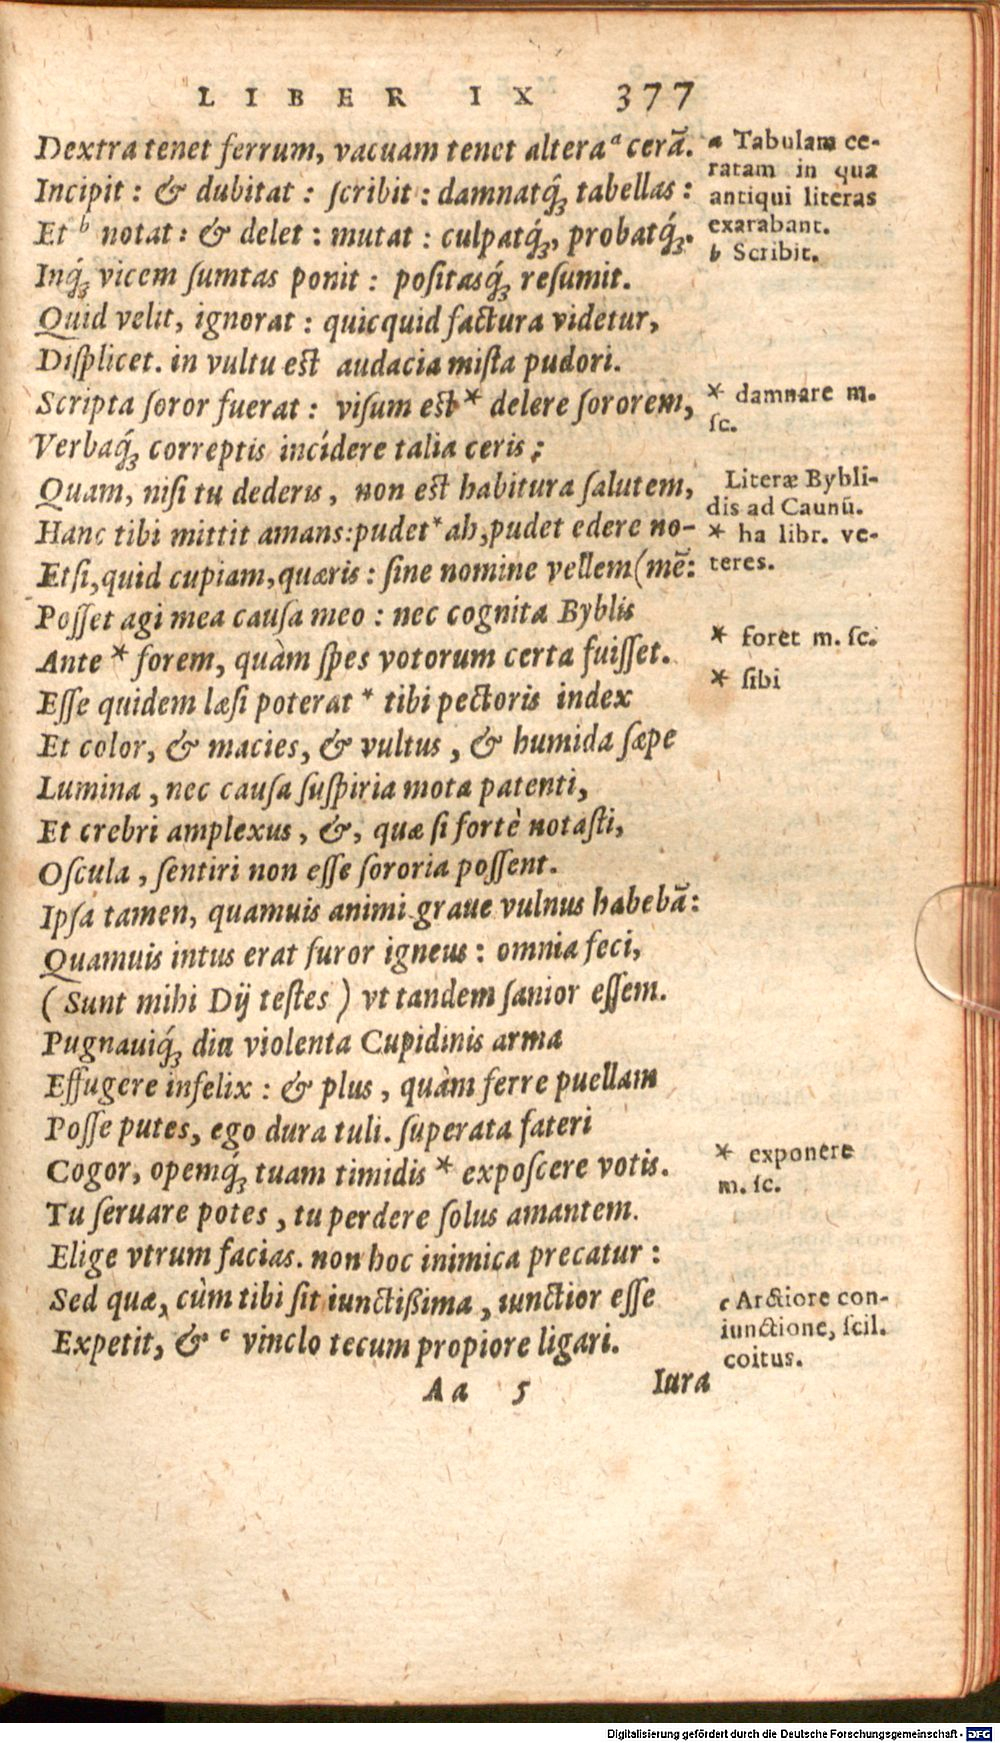 LIBER IX 377
Dextra tenet ferrum, vacuam tenet altera ᵃ cerā.
Incipit: & dubitat: ſcribit: damnatq́ꝫ tabellas:
Et ᵇ notat: & delet: mutat: culpatq́ꝫ, probatq́ꝫ.
Inq́ꝫ vicem ſumtas ponit: poſitasq́ꝫ reſumit.
Quid velit, ignorat: quicquid factura videtur,
Diſplicet. in vultu est audacia miſta pudori.
Scripta ſoror fuerat: viſum est * delere ſororem,
Verbaq́ꝫ correptis incídere talia ceris;
Quam, niſi tu dederis, non est habitura ſalutem,
Hanc tibi mittit amans: pudet * ah, pudet edere no-
Etſi, quid cupiam, quæris: ſine nomine vellem (mē:
Poſſet agi mea cauſa meo: nec cognita Byblis
Ante * forem, quàm ſpes votorum certa fuiſſet.
Eſſe quidem læſi poterat * tibi pectoris index
Et color, & macies, & vultus, & humida ſæpe
Lumina, nec cauſa ſuſpiria mota patenti,
Et crebri amplexus, &, quæ ſi fortè notaſti,
Oſcula, ſentiri non eſſe ſororia poſſent.
Ipſa tamen, quamuis animi graue vulnus habebā:
Quamuis intus erat furor igneus: omnia feci,
(Sunt mihi Dij teſtes) vt tandem ſanior eſſem.
Pugnauiq́ꝫ diu violenta Cupidinis arma
Effugere infelix: & plus, quàm ferre puellam
Poſſe putes, ego dura tuli. ſuperata fateri
Cogor, opemq́ꝫ tuam timidis * expoſcere votis.
Tu ſeruare potes, tu perdere ſolus amantem.
Elige vtrum facias. non hoc inimica precatur:
Sed quæ, cùm tibi ſit iunctißima, iunctior eſſe
Expetit, & ᶜ vinclo tecum propiore ligari.
Aa 5 Iura
a Tabulam ce-
ratam in qua
antiqui literas
exarabant.
b Scribit.
* damnare m.
ſc.
Literæ Bybli-
dis ad Caunū.
* ha libr. ve-
teres.
* foret m. ſc.
* ſibi
* exponere
m. ſc.
c Arctiore con-
iunctione, ſcil.
coitus.
Digitalisierung gefördert durch die Deutsche Forschungsgemeinschaft - DFG